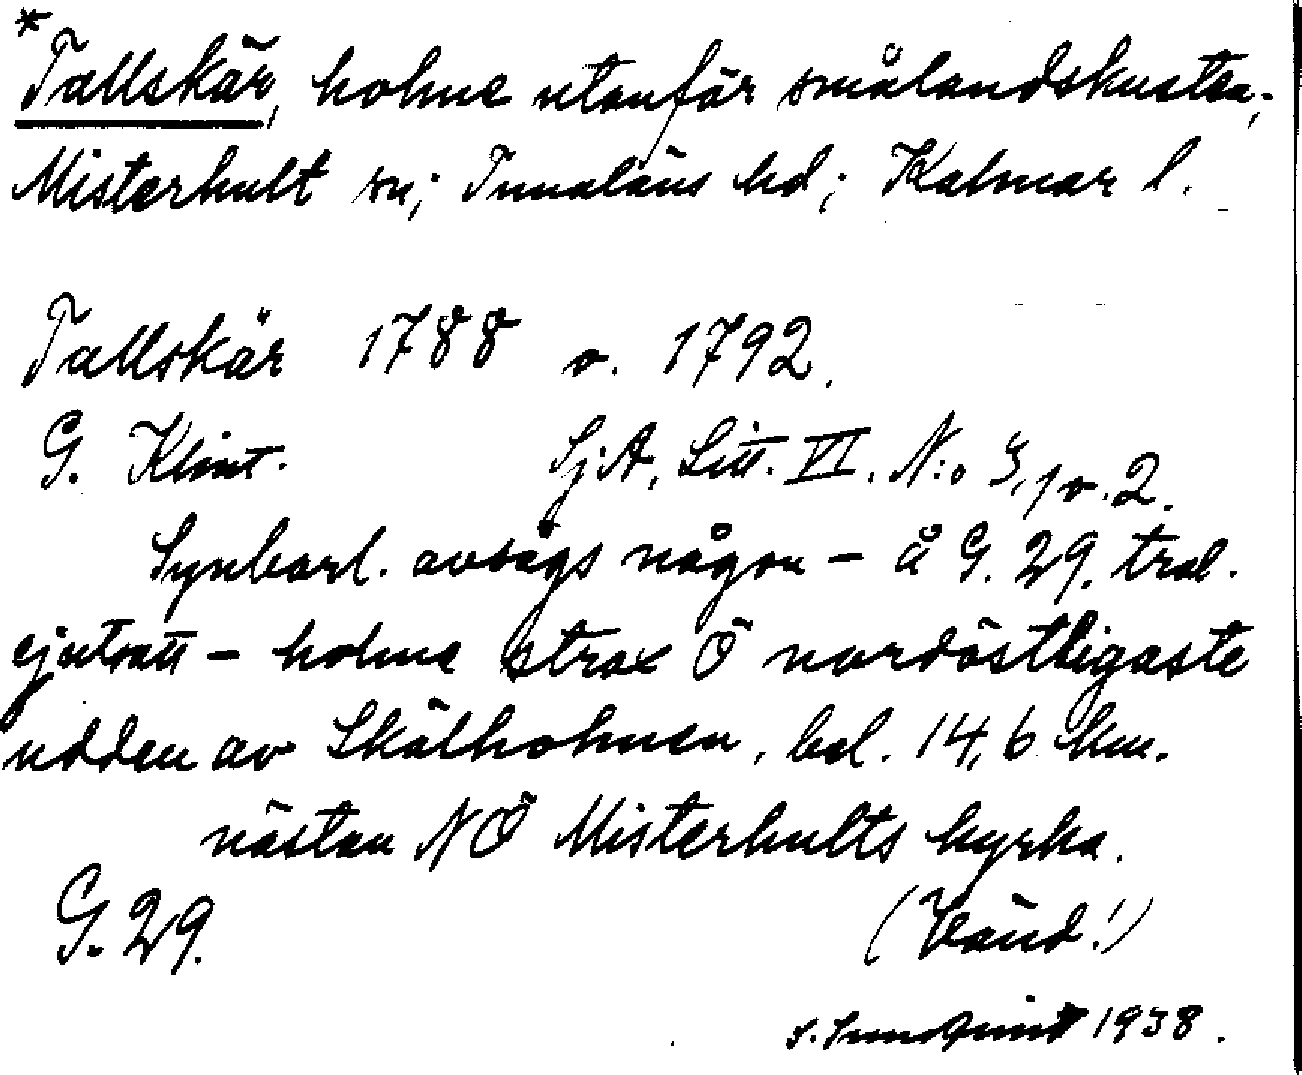 *Tallskär, holme utanför smålandskusten;
Misterhult sn; Tunaläns hd; Kalmar l.
Tallskär 1788 o. 1792.
G. Klint. SjA, Litt. VI. N:o 3, 1 o. 2.
Synbarl. avsågs någon – å G. 29. trol.
ej utsatt – holme strax Ö nordöstligaste
udden av Skälholmen, bel. 14,6 km.
nästan NÖ Misterhults kyrka.
G. 29. (Vänd!)
S. Sundqvist 1938.